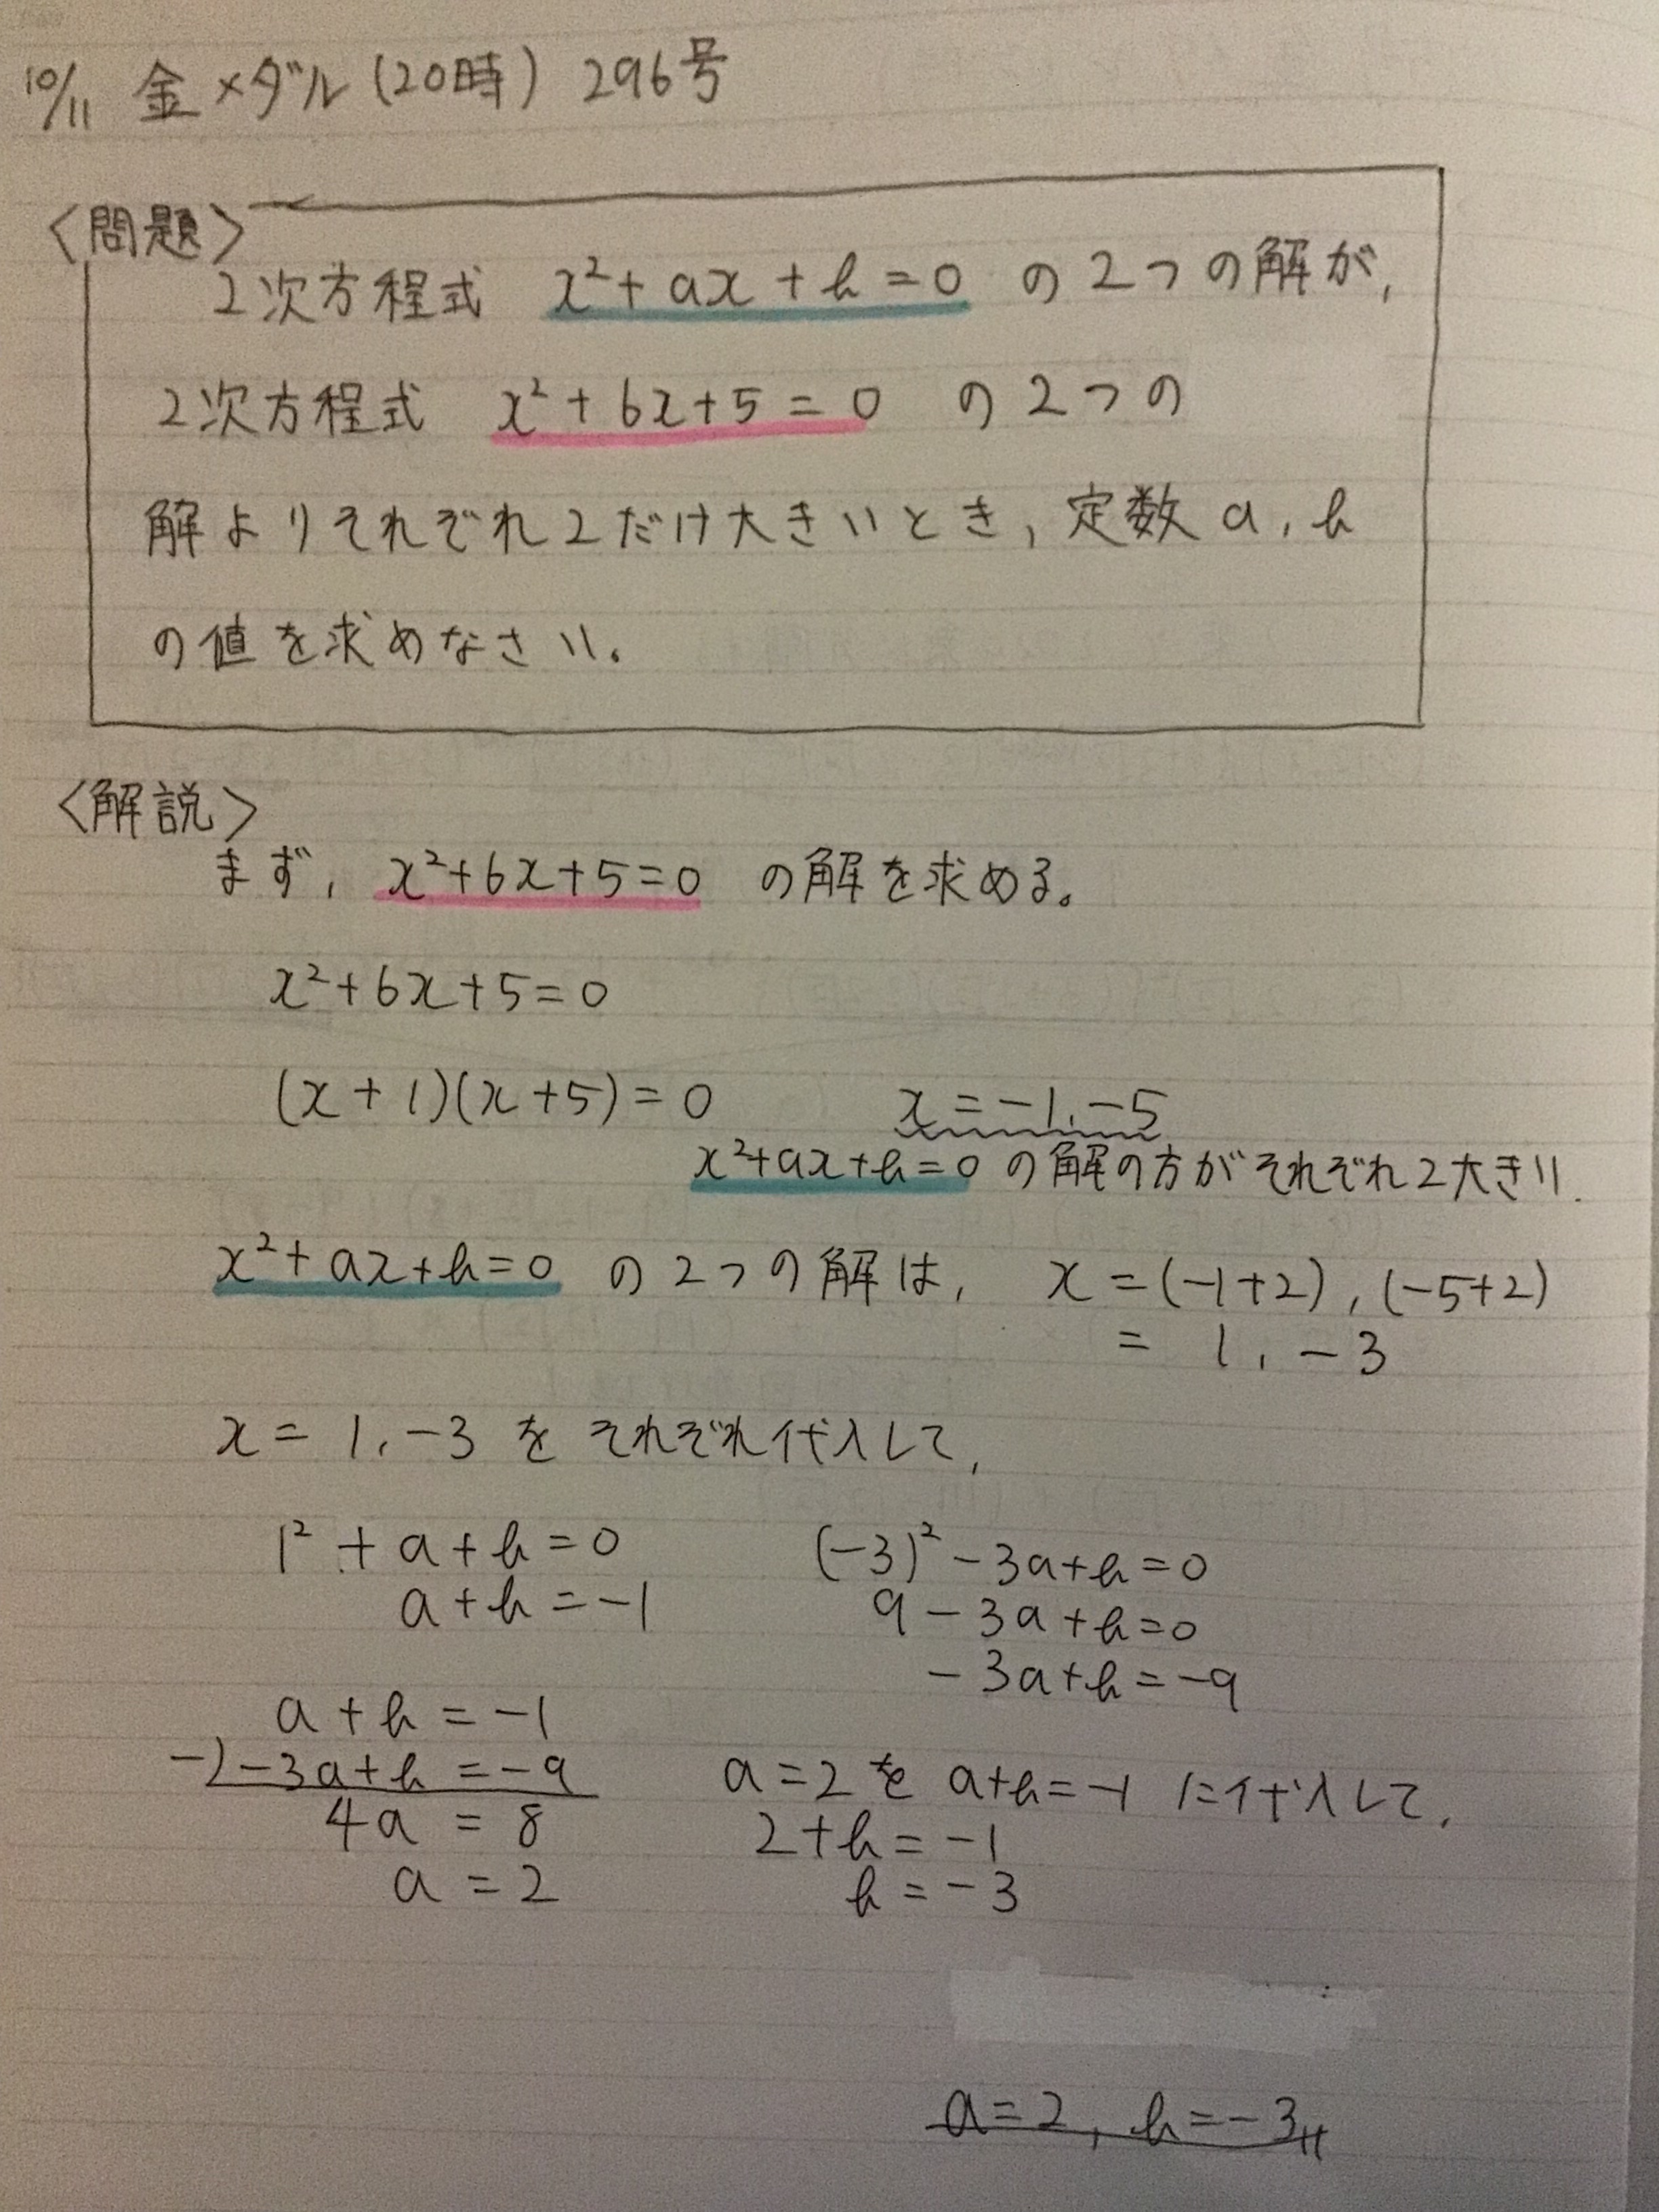 10/11 金メダル(20時) 296号
〈問題〉
2次方程式 x²+ax+b=0 の2つの解が,
2次方程式 x²+6x+5=0 の2つの
解よりそれぞれ2だけ大きいとき,定数a,b
の値を求めなさい。
〈解説〉
まず, x²+6x+5=0 の解を求める。
x²+6x+5=0
(x+1)(x+5)=0 x=-1,-5
x²+ax+b=0の解の方がそれぞれ2大きい.
x²+ax+b=0 の2つの解は, x=(-1+2),(-5+2)
= 1,-3
x=1,-3をそれぞれ代入して,
1²+a+b=0 (-3)²-3a+b=0
a+b=-1 9-3a+b=0
-3a+b=-9
a+b=-1
-)-3a+b=-9 a=2をa+b=-1に代入して,
4a=8 2+b=-1
a=2 b=-3
a=2,b=-3